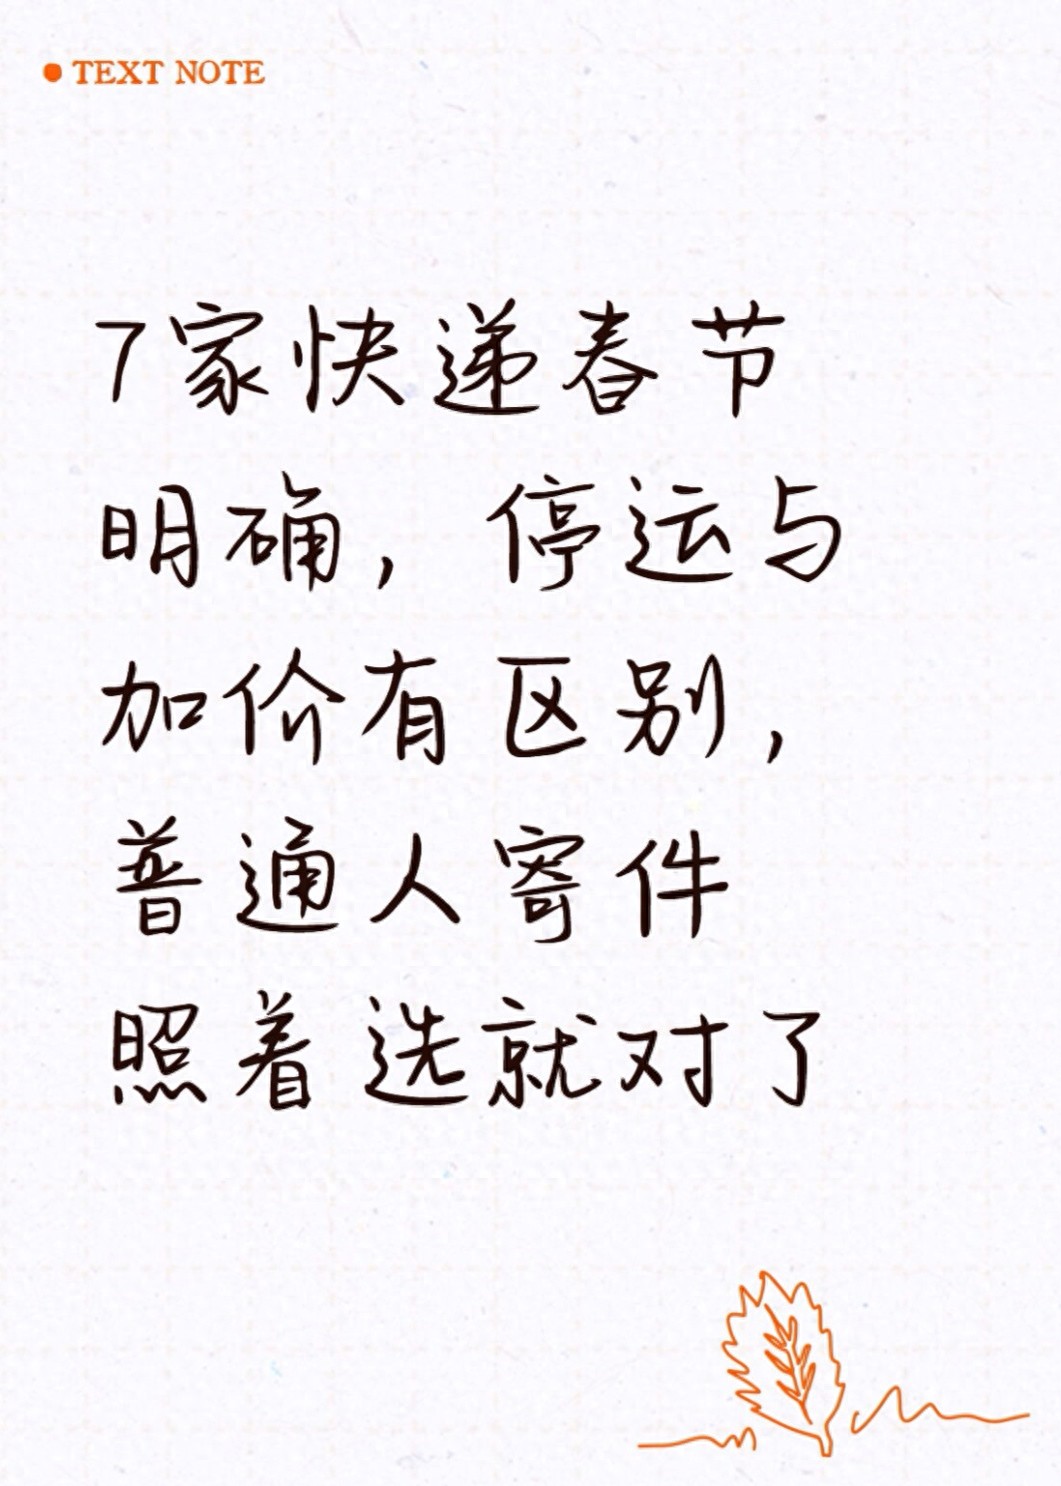 TEXT NOTE
7家快递春节
明确，停运与
加价有区别，
普通人寄件
照着选就对了